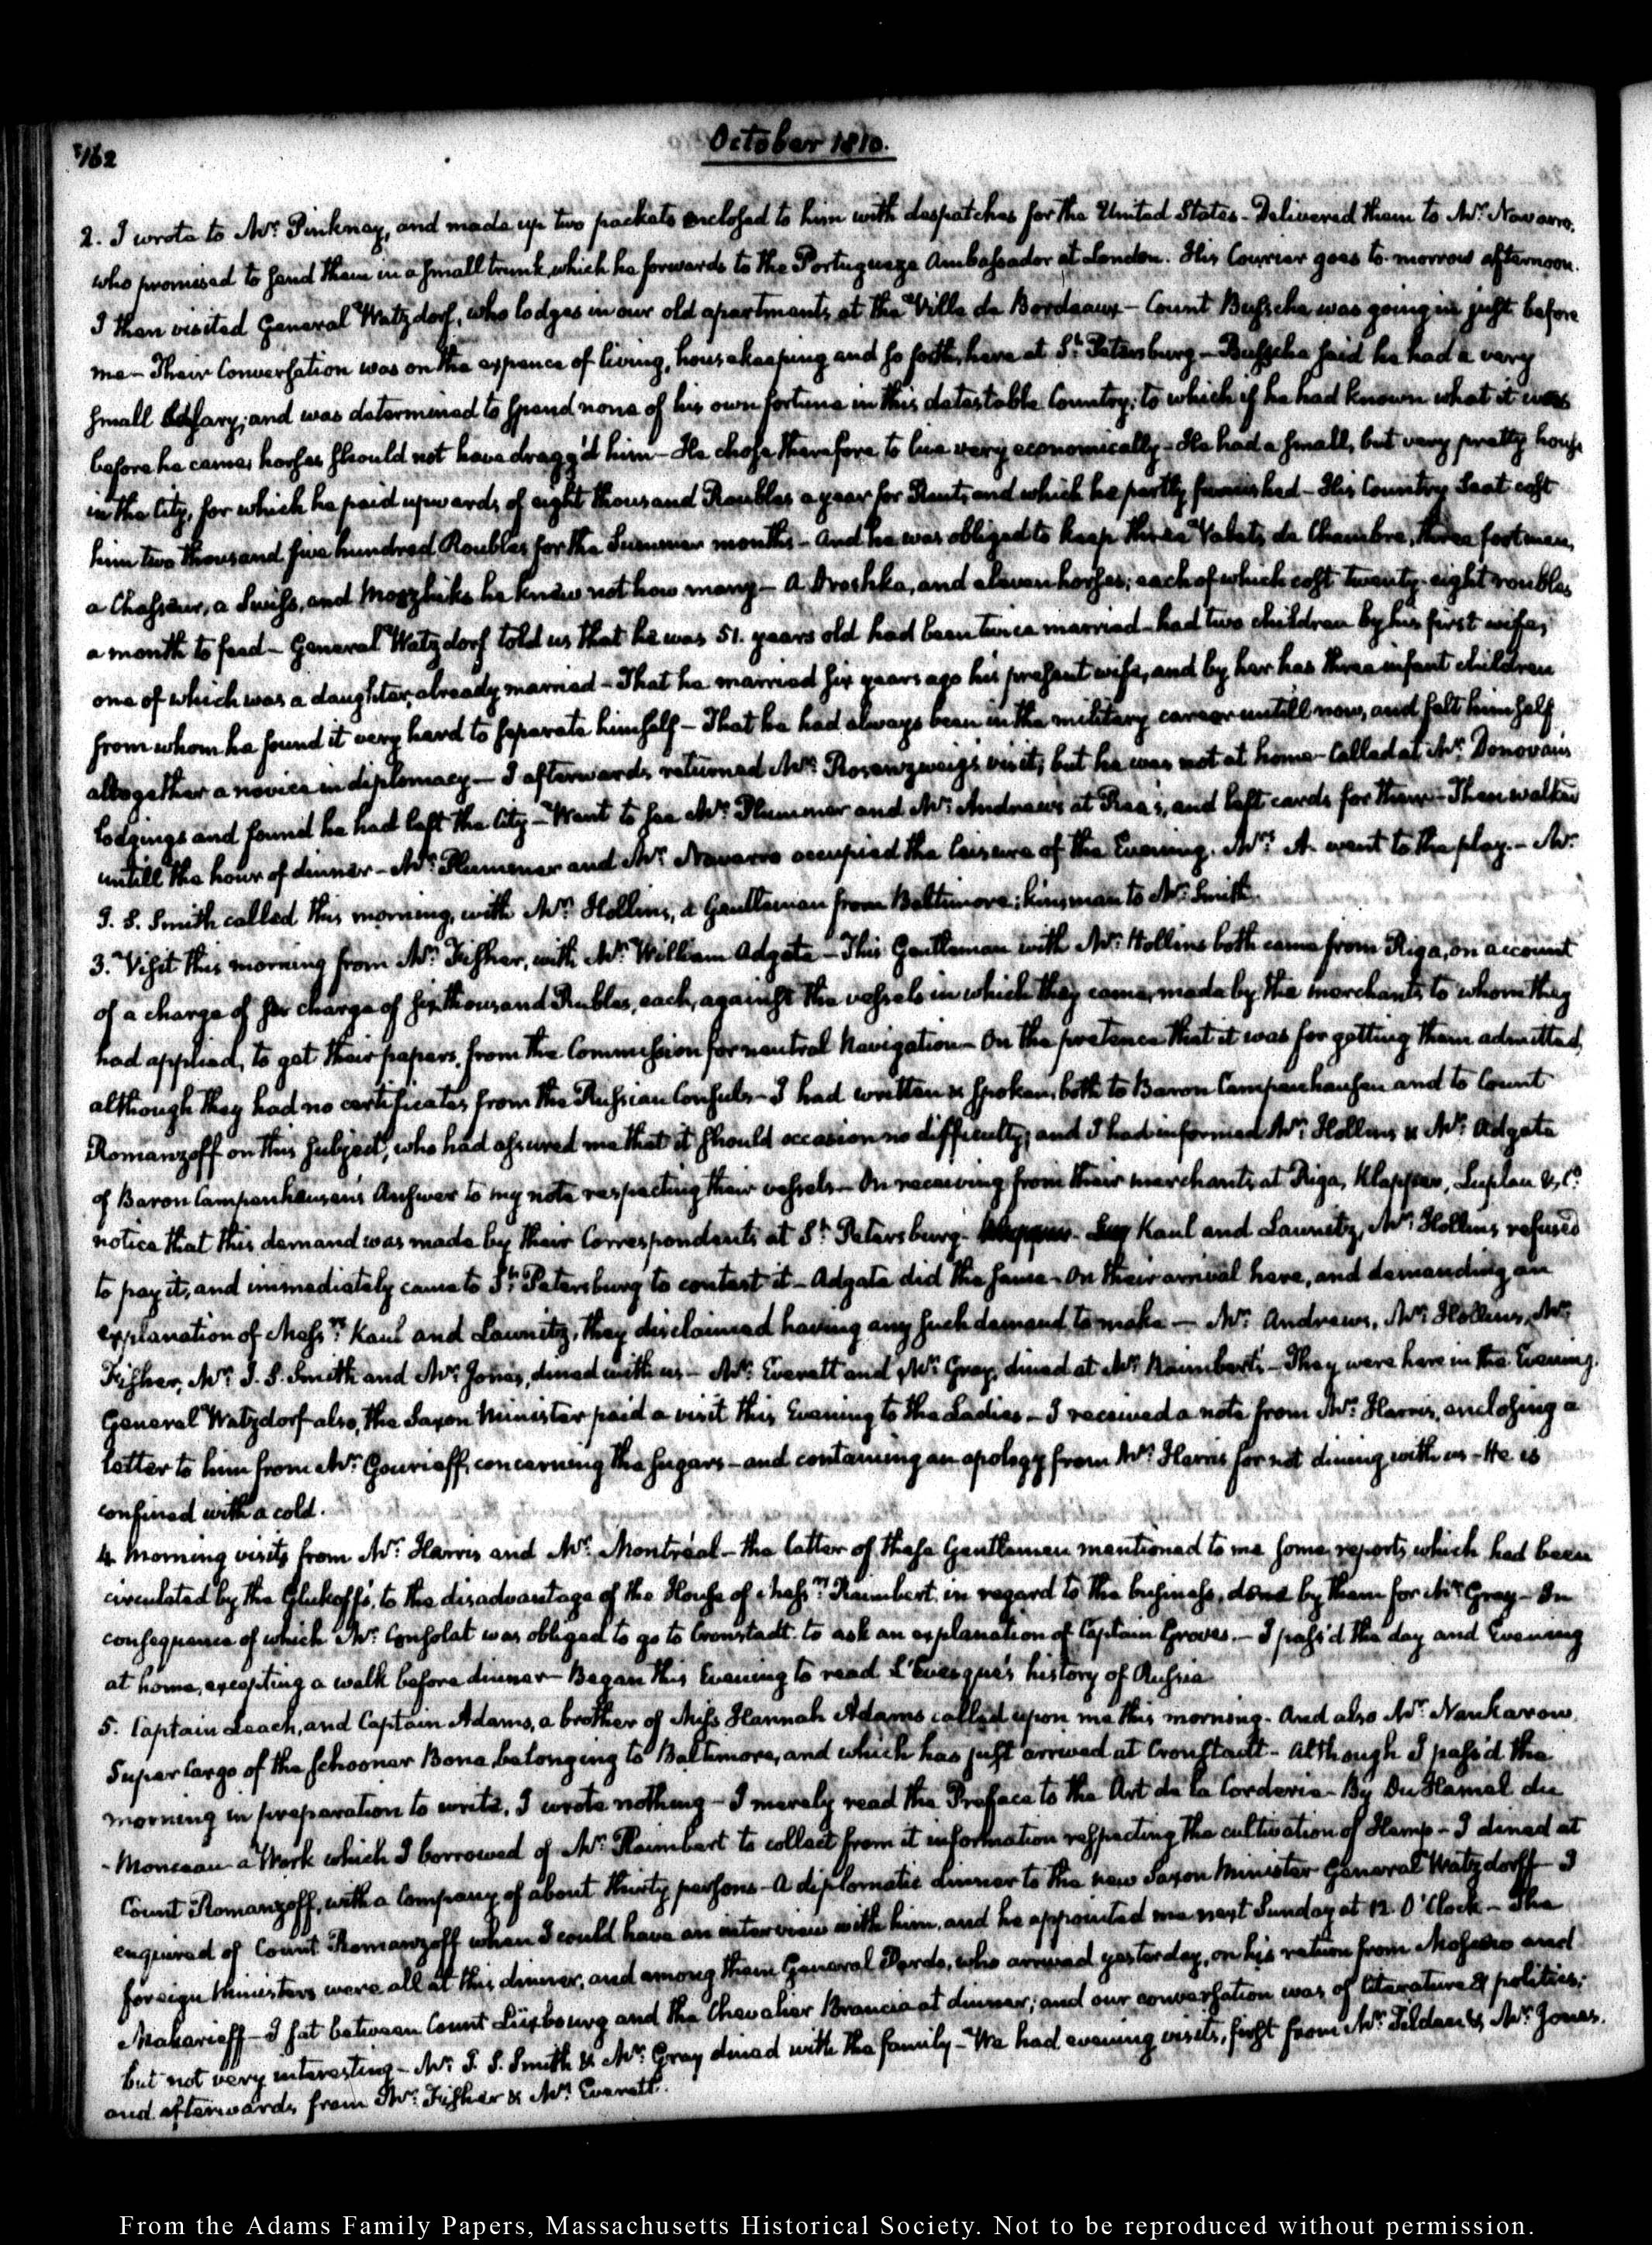 162
October 1810.
2. I wrote to Mr. Pinkney, and made up two packets enclosed to him with despatches for the United States - Delivered them to Mr. Navarro.
who promised to send them in a small trunk, which he forwards to the Portugueze Ambassador at London. His Courier goes to-morrow afternoon.
I then visited General Watzdorf, who lodges in our old apartments at the Ville de Bordeaux - Count Bussche was going in just before
me - Their Conversation was on the expence of living, housekeeping and so forth, here at St. Petersburg - Bussche said he had a very
small salary; and was determined to spend none of his own fortune in this detestable Country; to which if he had known what it was
before he came, horses should not have dragg'd him - He chose therefore to live very economically - He had a small, but very pretty house
in the City, for which he paid upwards of eight thousand Roubles a year for Rent, and which he partly furnished - His Country Seat cost
him two thousand five hundred Roubles for the Summer months - And he was obliged to keep three Valets de Chambre, three footmen,
a Chasseur, a Swiss, and Mozhiks he knew not how many - A Droshka, and eleven horses; each of which cost twenty-eight roubles
a month to feed - General Watzdorf told us that he was 51. years old had been twice married - had two children by his first wife,
one of which was a daughter, already married - That he married six years ago his present wife, and by her has three infant children
from whom he found it very hard to separate himself - That he had always been in the military career untill now, and felt himself
altogether a novice in diplomacy - I afterwards returned Mr. Rosenzweig's visit; but he was not at home - Called at Mr. Donovan's
lodgings and found he had left the City - Went to see Mr. Plummer and Mr. Andrews at Rea's, and left cards for them - Then walked
untill the hour of dinner - Mr. Plummer and Mr. Navarro occupied the leisure of the Evening. Mrs. A. went to the play. - Mr.
J. S. Smith called this morning, with Mr. Hollins, a Gentleman from Baltimore; kinsman to Mr. Smith.
3. Visit this morning from Mr. Fisher, with Mr. William Adgate - This Gentleman with Mr. Hollins both came from Riga, on account
of a charge of for charge of six thousand Rubles, each, against the vessels in which they came, made by the merchants to whom they
had applied, to get their papers from the Commission for neutral Navigation - On the pretence that it was for getting them admitted,
although they had no certificates from the Russian Consuls - I had written & spoken, both to Baron Campenhausen and to Count
Romanzoff on this subject, who had assured me that it should occasion no difficulty; and I had informed Mr. Hollins & Mr. Adgate
of Baron Campenhausen's Answer to my note respecting their vessels - On receiving from their merchants at Riga, & Co.
notice that this demand was made by their Correspondents at St. Petersburg - Kaul and Launitz, Mr. Hollins refused
to pay it, and immediately came to St. Petersburg to contest it - Adgate did the same - On their arrival here, and demanding an
explanation of Messrs. Kaul and Launitz, they disclaimed having any such demand to make - Mr. Andrews, Mr. Hollins, Mr.
Fisher, Mr. J. S. Smith and Mr. Jones, dined with us - Mr. Everett and Mr. Gray, dined at Mr. Raimbert's - They were here in the Evening.
General Watzdorf also, the Saxon Minister paid a visit this Evening to the Ladies - I received a note from Mr. Harris, enclosing a
letter to him from Mr. Gourieff, concerning the sugars - and containing an apology from Mr. Harris for not dining with us - He is
confined with a cold.
4. Morning visits from Mr. Harris and Mr. Montréal - the latter of these Gentlemen mentioned to me some reports which had been
circulated by the Glukoffs, to the disadvantage of the House of Messrs. Raimbert, in regard to the business, done by them for Mr. Gray - In
consequence of which Mr. Consolat was obliged to go to Cronstadt to ask an explanation of Captain Groves. - I pass'd the day and Evening
at home, excepting a walk before dinner - Began this Evening to read L'Evesque's history of Russia
5. Captain Leach, and Captain Adams, a brother of Miss Hannah Adams called upon me this morning. And also Mr. Nankarrow,
Super Cargo of the schooner Bona, belonging to Baltimore, and which has just arrived at Cronstadt - Although I pass'd the
morning in preparation to write, I wrote nothing - I merely read the Preface to the Art de la Corderie - By Du Hamel du
Monceau - a Work which I borrowed of Mr. Raimbert to collect from it information respecting the cultivation of Hemp - I dined at
Count Romanzoff, with a Company of about thirty persons - A diplomatic dinner to the new Saxon Minister General Watzdorff - I
enquired of Count Romanzoff when I could have an interview with him, and he appointed me next Sunday at 12. O'Clock - The
foreign Ministers were all at this dinner, and among them General Pardo, who arrived yesterday, on his return from Moscow and
Makarieff - I sat between Count Lüxbourg and the Chevalier Brancia at dinner; and our conversation was of literature & politics;
but not very interesting - Mr. J. S. Smith & Mr. Gray dined with the family - We had evening visits, first from Mr. Felden & Mr. Jones.
and afterwards from Mr. Fisher & Mr. Everett.
From the Adams Family Papers, Massachusetts Historical Society. Not to be reproduced without permission.